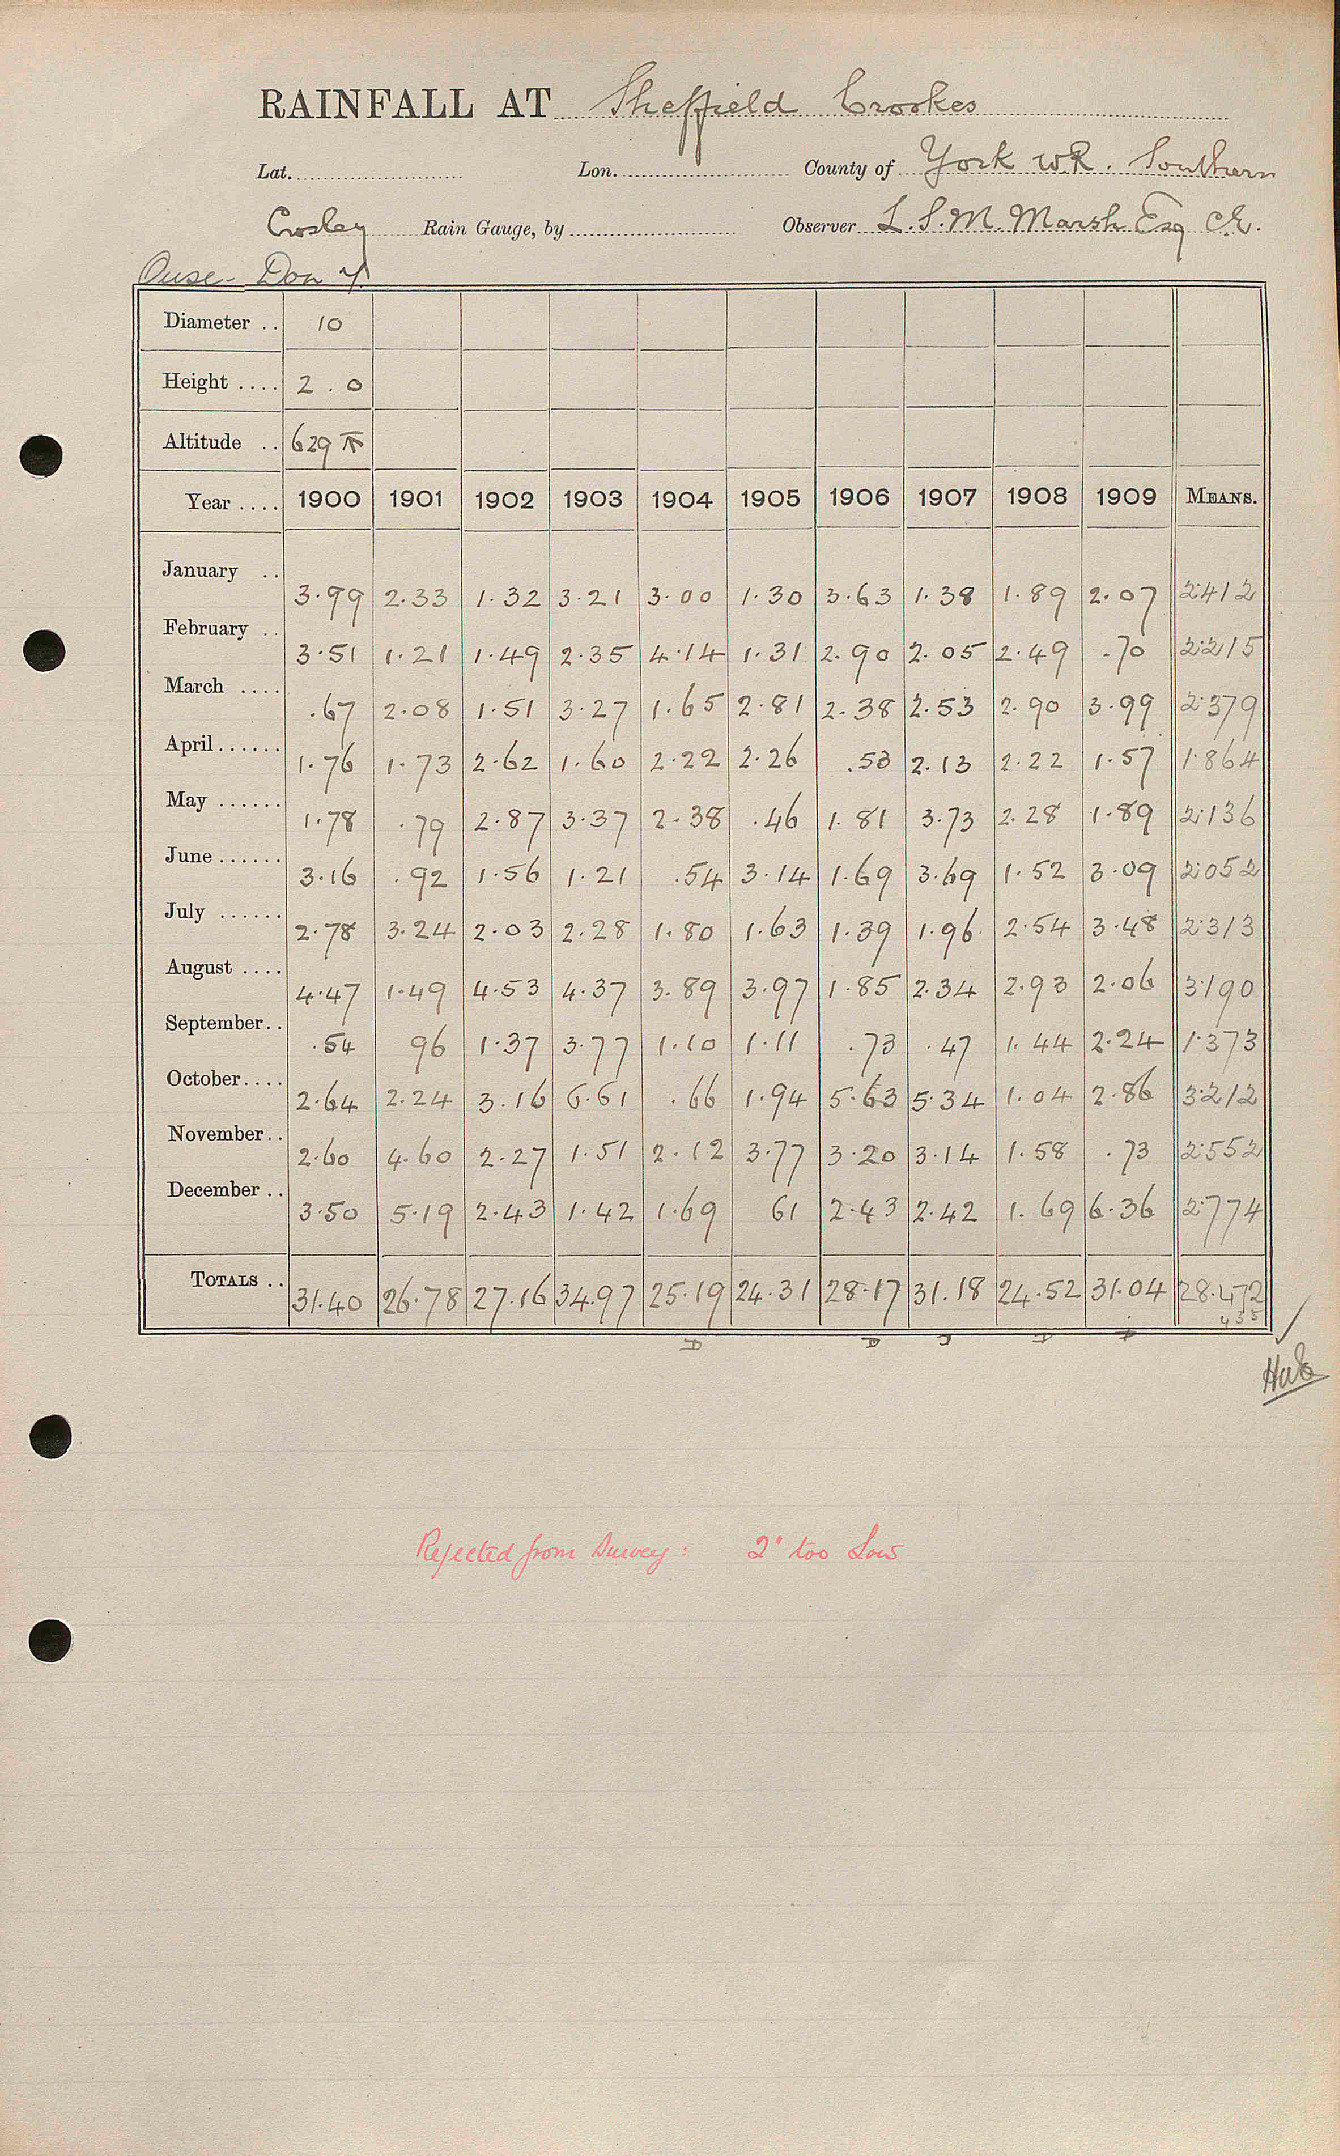 RAINFALL AT Sheffield Crookes
Lat. Lon. County of York W.R. Southern
Crosley Rain Gauge, by Observer L.S.M. Marsh Esq C.E.
Ouse - Don
Diameter .. 10
Height .... 2.0
Altitude .. 629
Year .... 1900 1901 1902 1903 1904 1905 1906 1907 1908 1909 MEANS.
January .. 3.99 2.33 1.32 3.21 3.00 1.30 3.63 1.38 1.89 2.07 2.412
February .. 3.51 1.21 1.49 2.35 4.14 1.31 2.90 2.05 2.49 .70 2.215
March .... .67 2.08 1.51 3.27 1.65 2.81 2.38 2.53 2.90 3.99 2.379
April...... 1.76 1.73 2.62 1.60 2.22 2.26 .53 2.13 2.22 1.57 1.864
May ...... 1.78 .79 2.87 3.37 2.38 .46 1.81 3.73 2.28 1.89 2.136
June ...... 3.16 .92 1.56 1.21 .54 3.14 1.69 3.69 1.52 3.09 2.052
July ...... 2.78 3.24 2.03 2.28 1.80 1.63 1.39 1.96 2.54 3.48 2.313
August .... 4.47 1.49 4.53 4.37 3.89 3.97 1.85 2.34 2.93 2.06 3.190
September.. .54 96 1.37 3.77 1.10 1.11 .73 .47 1.44 2.24 1.373
October.... 2.64 2.24 3.16 6.61 .66 1.94 5.63 5.34 1.04 2.86 3.212
November.. 2.60 4.60 2.27 1.51 2.12 3.77 3.20 3.14 1.58 .73 2.552
December .. 3.50 5.19 2.43 1.42 1.69 61 2.43 2.42 1.69 6.36 2.774
TOTALS .. 31.40 26.78 27.16 34.97 25.19 24.31 28.17 31.18 24.52 31.04 28.472
435
Rejected from Survey: 2" too Low